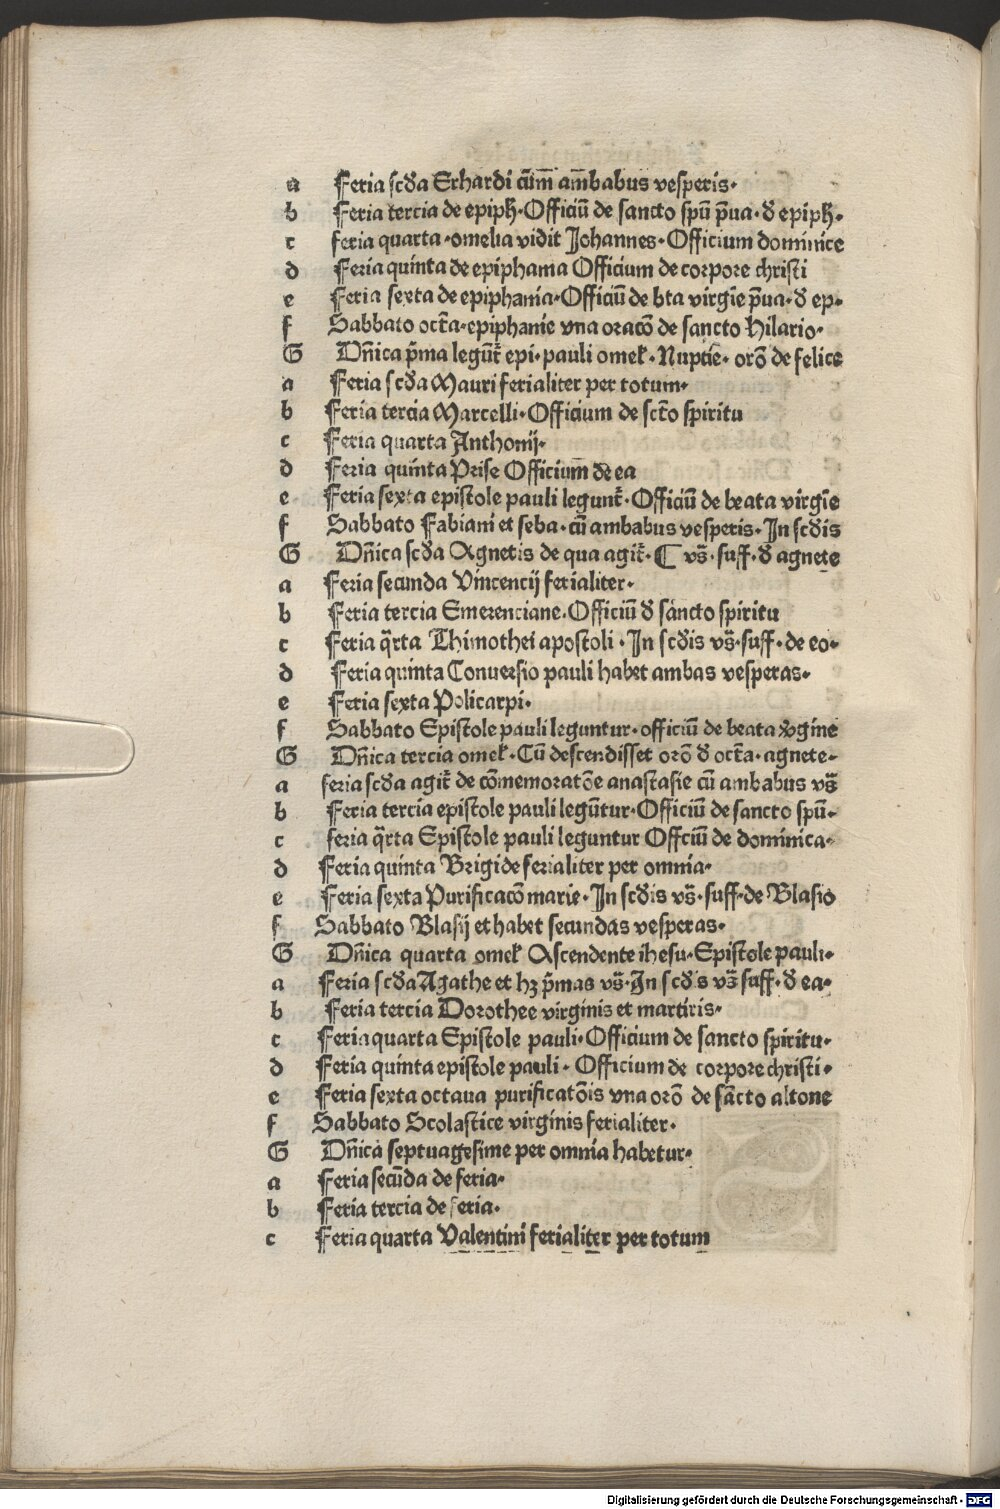 a Feria scd̄a Erhardi cum̄ am̄babus vesperis·
b Feria tercia de epiph̄·Officiū de sancto spū p̄ua·d̄ epiph̄·
c feria quarta·omelia vidit Johannes·Officium dominice
d Feria quinta de epiphania Officium de corpore christi
e Feria sexta de epiphania·Officiū de bta virgīe p̄ua·d̄ ep·
f Sabbato oct̄a·epiphanie vna oracō de sancto Hilario·
G Dn̄ica p̄ma legūt̄ epi·pauli omel̄·Nuptie·orō de felice
a Feria scd̄a Mauri ferialiter per totum·
b Feria tercia Marcelli·Officium de sct̄o spiritu
c Feria quarta Anthonij·
d Feria quinta Prise Officium de ea
e Feria sexta epistole pauli legunt̄·Officiū de beata virgīe
f Sabbato Fabiani et seba·cū ambabus vesperis·In scd̄is
G Dn̄ica scd̄a Agnetis de qua agit̄·¶ vs̄·suff·d̄ agnete
a Feria secunda Vincencij ferialiter·
b Feria tercia Emerenciane·Officiū d̄ sancto spiritu
c Feria q̄rta Thimothei apostoli·In scd̄is vs̄·suff·de eo·
d Feria quinta Conuersio pauli habet ambas vesperas·
e Feria sexta Policarpi·
f Sabbato Epistole pauli leguntur·officiū de beata v̄gine
G Dn̄ica tercia omel̄·Cū descendisset orō d̄ oct̄a·agnete·
a feria scd̄a agit̄ de cōmemoratōe anastasie cū ambabus vs̄
b Feria tercia epistole pauli legūtur·Officiū de sancto spū·
c feria q̄rta Epistole pauli leguntur Offciū de dominica·
d Feria quinta Brigide ferialiter per omnia·
e Feria sexta Purificacō marie·In scd̄is vs̄·suff·de Blasio
f Sabbato Blasij et habet secundas vesperas·
G Dn̄ica quarta omel̄ Ascendente ihesu·Epistole pauli·
a Feria scd̄a Agathe et hꝫ p̄mas vs̄·In scd̄s vs̄ suff·d̄ ea·
b Feria tercia Dorothee virginis et martiris·
c Feria quarta Epistole pauli·Officium de sancto spiritu·
d Feria quinta epistole pauli·Officium de corpore christi·
e Feria sexta octaua purificatōis vna orō de sācto altone
f Sabbato Scolastice virginis ferialiter·
G Dn̄ica septuagesime per omnia habetur·
a Feria secūda de feria·
b Feria tercia de feria·
c Feria quarta Valentini ferialiter per totum
Digitalisierung gefördert durch die Deutsche Forschungsgemeinschaft · DFG